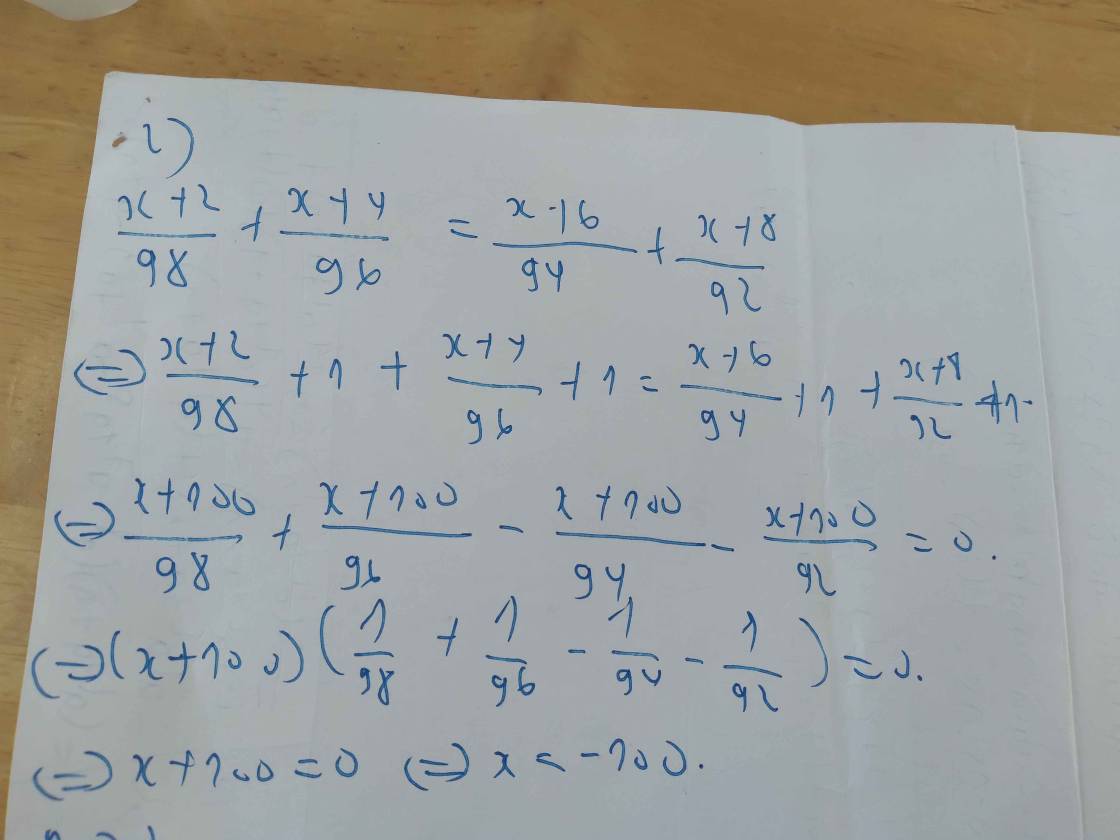 2)
x+2/98 + x+4/96 = x+6/94 + x+8/92
(=) x+2/98 + 1 + x+4/96 + 1 = x+6/94 + 1 + x+8/92 + 1.
(=) x+100/98 + x+100/96 - x+100/94 - x+100/92 = 0.
(=) (x+100) (1/98 + 1/96 - 1/94 - 1/92) = 0.
(=) x+100=0 (=) x = -100.